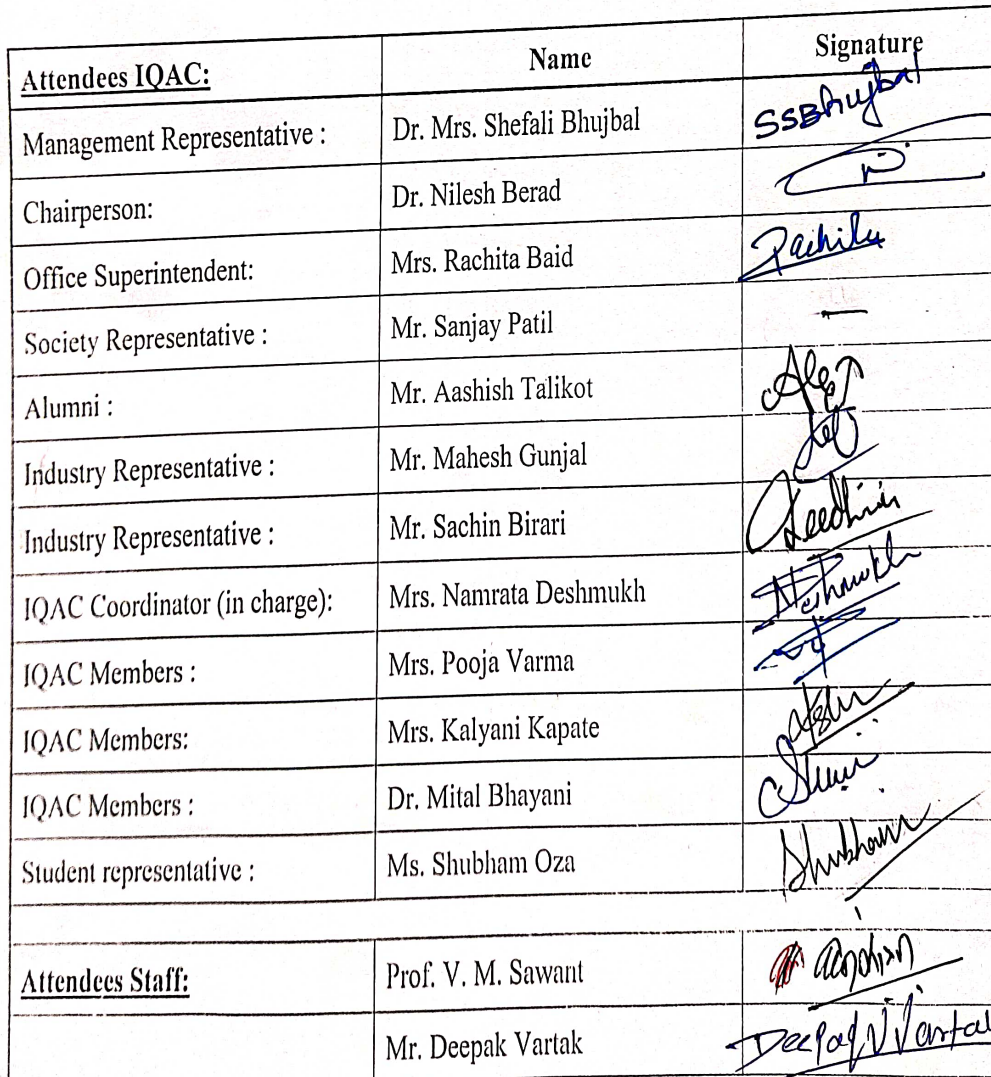 Attendees IQAC: Name Signature
Management Representative : Dr. Mrs. Shefali Bhujbal SSBhujbal
Chairperson: Dr. Nilesh Berad
Office Superintendent: Mrs. Rachita Baid Rachita
Society Representative : Mr. Sanjay Patil —
Alumni : Mr. Aashish Talikot
Industry Representative : Mr. Mahesh Gunjal
Industry Representative : Mr. Sachin Birari
IQAC Coordinator (in charge): Mrs. Namrata Deshmukh NDeshmukh
IQAC Members : Mrs. Pooja Varma
IQAC Members: Mrs. Kalyani Kapate
IQAC Members : Dr. Mital Bhayani
Student representative : Ms. Shubham Oza Shubham
Attendees Staff: Prof. V. M. Sawant
Mr. Deepak Vartak Deepak V Vartak